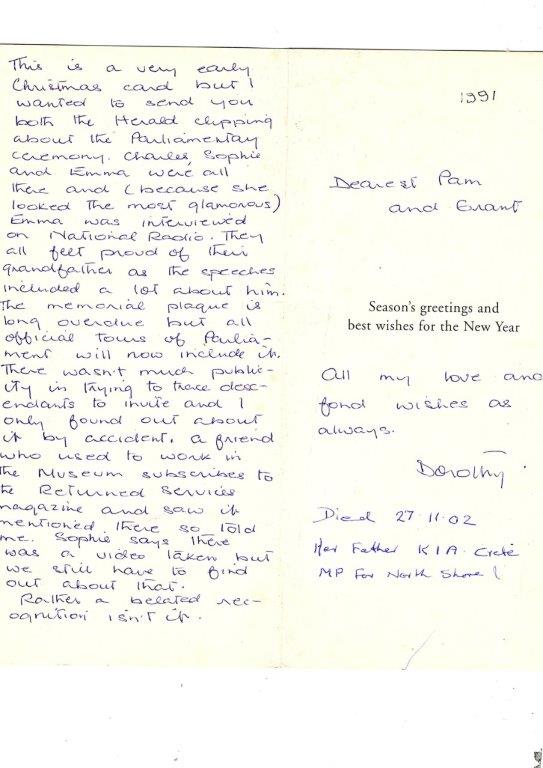 This is a very early
Christmas card but I
wanted to send you
both the Herald clipping
about the Parliamentary
ceremony. Charles, Sophie
and Emma were all
there and (because she
looked the most glamorous)
Emma was interviewed
on National Radio. They
all felt proud of their
grandfather as the speeches
included a lot about him.
The memorial plaque is
long overdue but all
official tours of Parlia-
ment will now include it.
There wasn't much public-
ity in trying to trace desc-
endants to invite and I
only found out about
it by accident. a friend
who used to work in
the Museum subscribes to
the Returned Services
magazine and saw it
mentioned there so told
me. Sophie says there
was a video taken but
we still have to find
out about that.
Rather a belated rec-
ognition isn't it.
1991
Dearest Pam
and Grant
Season's greetings and
best wishes for the New Year
All my love and
fond wishes as
always.
Dorothy
Died 27.11.02
Her Father KIA Crete
MP For North Shore